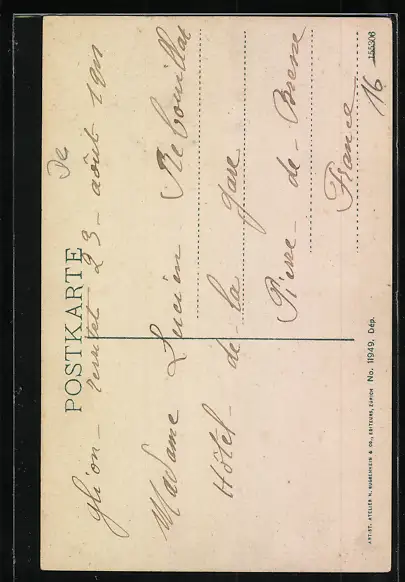 POSTKARTE
De
Glion - territet 23 - août 1911
Madame Lucien Rebouillat
Hôtel - de - la gare
Pierre - de - Bresse
France
16
155308
ARTIST. ATELIER H. GUGGENHEIM & CO., EDITEURS, ZÜRICH No. 11949, Dép.